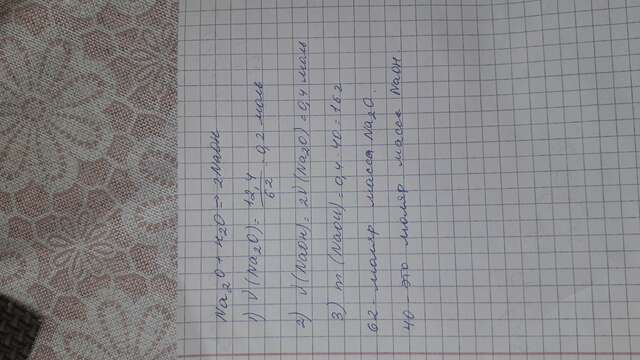 Na₂O + H₂O → 2NaOH
1) ν(Na₂O) = 12,4/62 = 0,2 моль
2) ν(NaOH) = 2ν(Na₂O) = 0,4 моль
3) m(NaOH) = 0,4 · 40 = 16 г
62 - моляр масса Na₂O.
40 - это моляр масса NaOH.